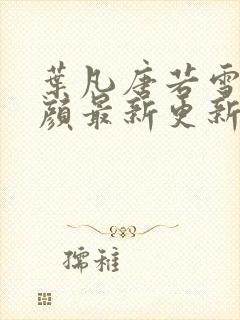 葉凡唐若雪
顏最新更新
孺稚